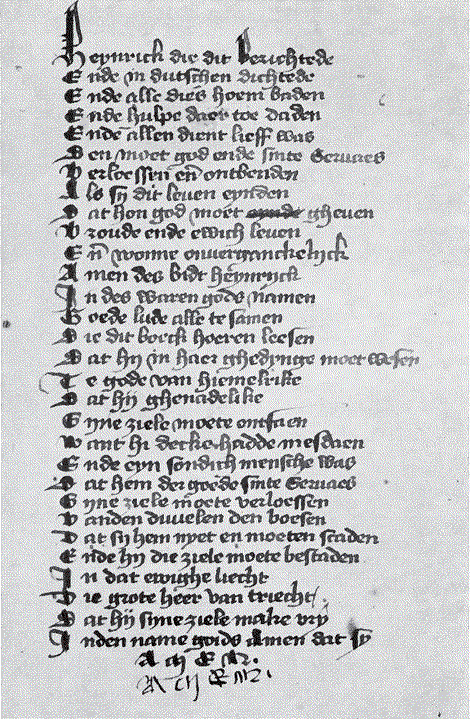 Heynrick die dit berichtede
Ende in dutschen dichtede
Ende alle dies hoem baden
Ende hulpe daer toe daden
Ende allen dient lieff was
Den moet god ende sinte Servaes
Verloessen en̄ ontbenden
Als sy dit leven eynden
Dat hon god moet gheven
Vroude ende ewich leven
En̄ wonne onverganckelijck
Amen des bidt heynrijck
In des waren gods namen
Goede lude alle te samen
Die dit boeck hoeren leesen
Dat hij in haer ghedynge moet wesen
Te gode van hiemelrike
Dat hij ghenadelike
Sijne ziele moete ontfaen
Want hi decke hadde mesdaen
Ende eyn sondich mensche was
Dat hem der goede sinte Servaes
Sijne ziele moete verloessen
Vanden duvelen den boesen
Dat sy hem nyet en moeten scaden
Ende hij die ziele moete bestaden
In dat ewighe liecht
Die grote heer van triecht
Dat hij sijne ziele make vry
Inden name goids Amen dat sy